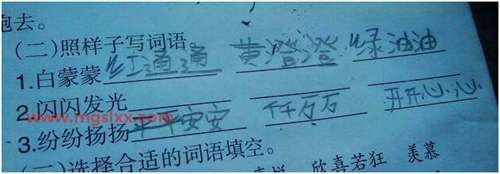 跑去。
(二)照样子写词语。
1.白蒙蒙 红通通 黄澄澄 绿油油
2.闪闪发光
www.mgslxx.com
3.纷纷扬扬 平平安安 千万万 开开心心
(一)选择合适的词语填空。
欣喜若狂 羡慕